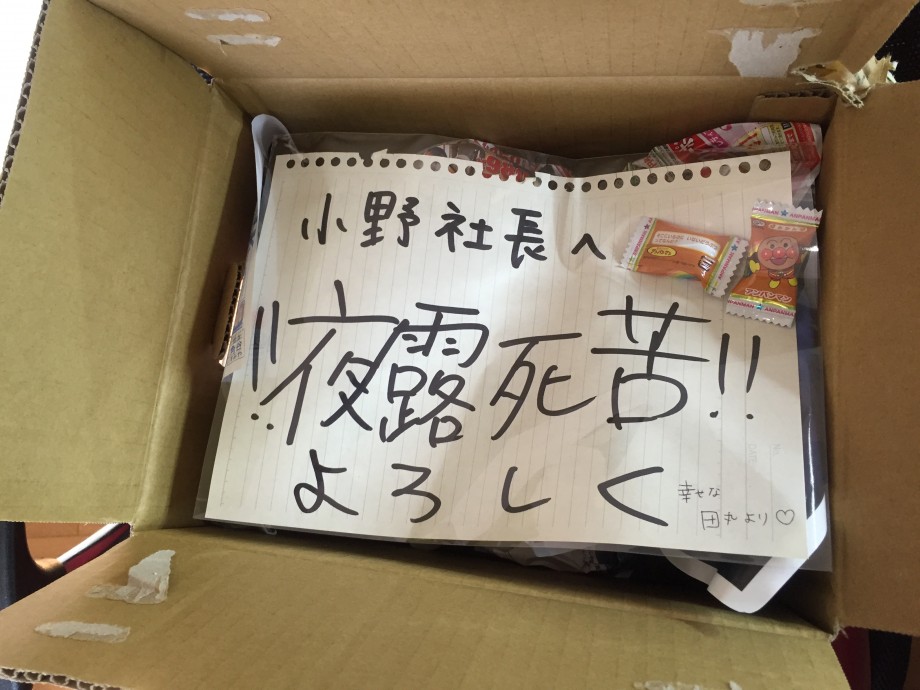 小野社長へ
!!夜露死苦!!
よろしく
幸せな
田丸より♡
アンパンマン